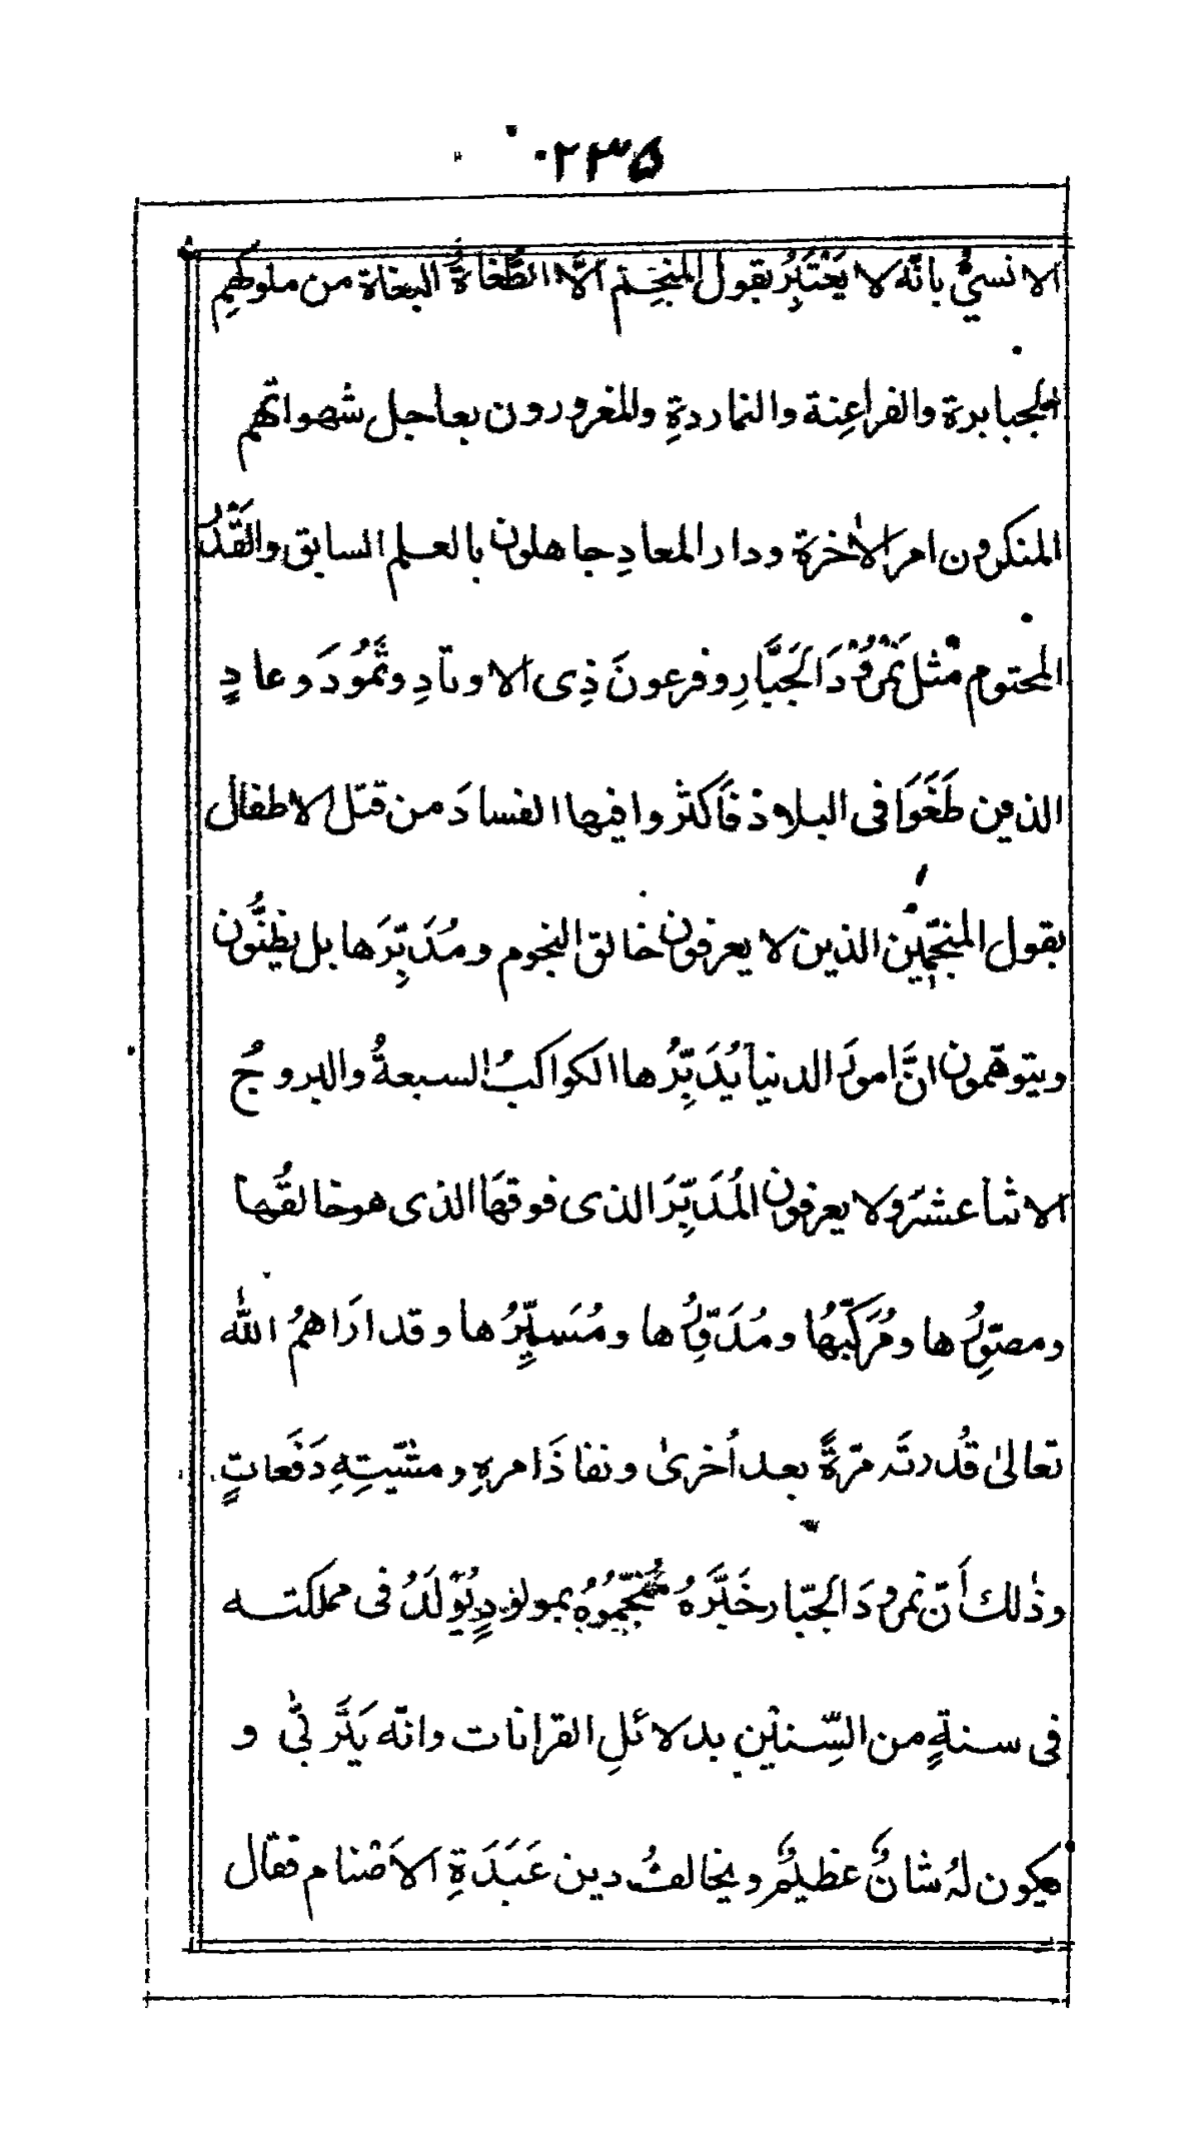 ۲۳۵
الانسیُّ بانّه لا یَعْتَبِرُ بقول المنجّم اَلَّا الطُّغاةُ البغاة من ملوکهمِ
الجبابرة والفراعِنة والنماردةِ والمغرورون بعاجل شهواتهم
المنکرون امر الاٰخرة ودار المعادِ جاهلون بالعلم السابق والقَدَر
المحتوم مثل نمرُوْدَ الجَبَّارِ وفرعونَ ذِی الاوتادِ وثَمُوْدَ وعادٍ
الذین طَغَوَا فی البلادْ فَاَکثروا فیها الفسادَ من قتل الاطفال
بقول المنجّمین الذین لا یعرفون خالق النجوم ومُدَبِّرَها بل یظنُّون
ویتوهّمون انَّ امورَ الدنیا یُدَبِّرُها الکواکبُ السبعةُ والبروجُ
الاثنا عشرَ ولا یعرفون المُدَبِّرَ الذی فوقهَا الذی هو خالقُها
ومصوِّرُها ومُرَکّبُها ومُدَوِّرُها ومُسَیِّرُها وقد ارَاهمُ اللّٰه
تعالیٰ قُدرتَه مرّةً بعد اُخریٰ ونفاذَ امرهِ ومشیّتِهِ دَفَعاتٍ
وذٰلك اَنّ نمرودَ الجَبّار خَبَّرَهُ مُنَجِّمُوْهُ بمولودٍ یُوْلَدُ فی مملکته
فی سنةٍ من السِّنیْن بدلائلِ القرانات وانّه یَتَرَبّٰی و
یکون لهُ شانٌ عظیمٌ ویخالفُ دین عَبَدَةِ الاَصْنام فقال